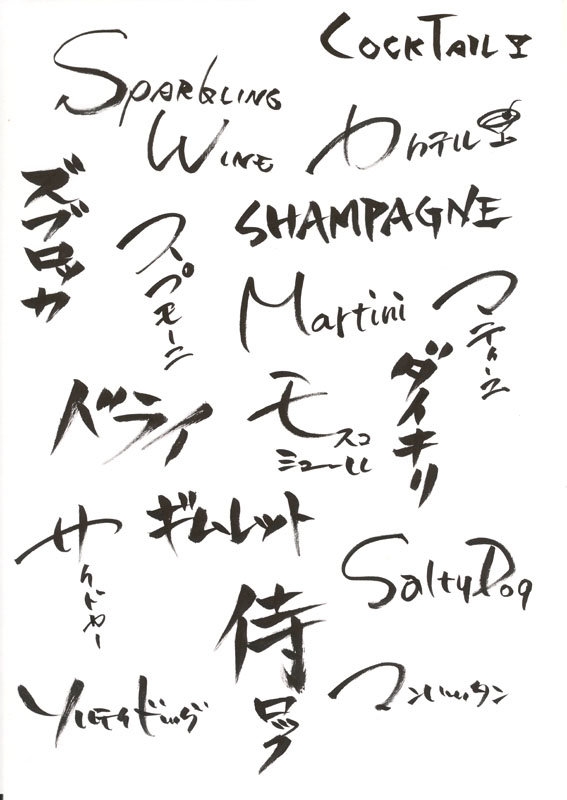 COCKTAIL
SPARKLING
WINE
カクテル
ズブロッカ
スプモーニ
SHAMPAGNE
Martini
マティーニ
ダイキリ
ドライ
モスコ
ミュール
サイドカー
ギムレット
SaltyDog
侍
ロック
ソルティドッグ
マンハッタン